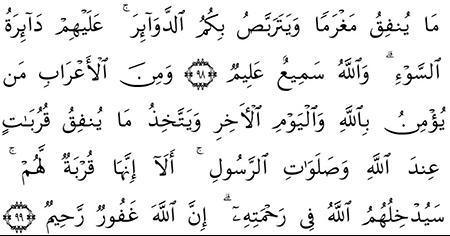 مَا يُنفِقُ مَغْرَمًا وَيَتَرَبَّصُ بِكُمُ الدَّوَآئِرَ ۚ عَلَيْهِمْ دَآئِرَةُ
السَّوْءِ ۗ وَاللَّهُ سَمِيعٌ عَلِيمٌ ﴿٩٨﴾ وَمِنَ الْأَعْرَابِ مَن
يُؤْمِنُ بِاللَّهِ وَالْيَوْمِ الْأَخِرِ وَيَتَّخِذُ مَا يُنفِقُ قُرُبَٰتٍ
عِندَ اللَّهِ وَصَلَوَٰتِ الرَّسُولِ ۚ أَلَآ إِنَّهَا قُرْبَةٌ لَّهُمْ ۚ
سَيُدْخِلُهُمُ اللَّهُ فِى رَحْمَتِهِۦٓ ۗ إِنَّ اللَّهَ غَفُورٌ رَّحِيمٌ ﴿٩٩﴾